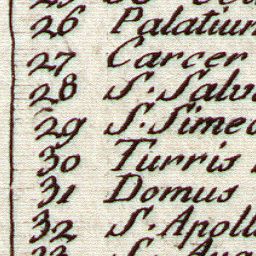 26 Palatium
27 Carcer
28 S. Salv
29 S. Simeo
30 Turris
31 Domus
32 S. Apoll
33 S.